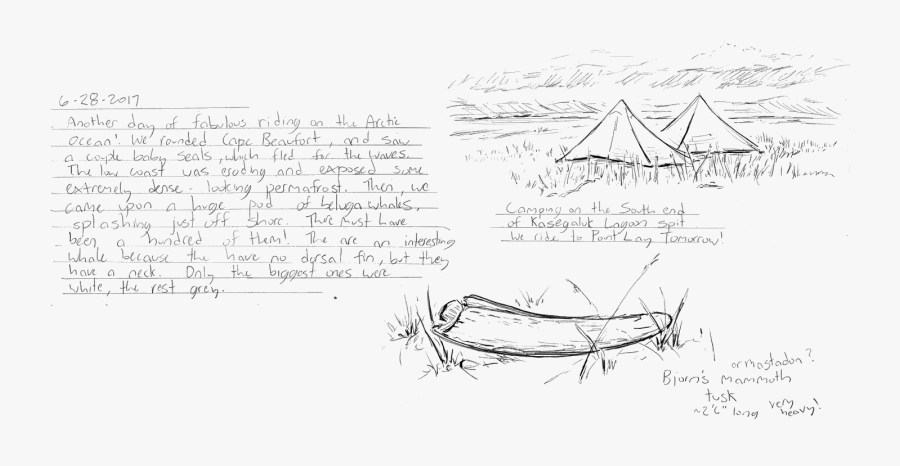 6-28-2017
Another day of fabulous riding on the Arctic
ocean! We rounded Cape Beaufort, and saw
a couple baby seals, which fled for the waves.
The low coast was eroding and exposed some
extremely dense-looking permafrost. Then, we
came upon a huge pod of beluga whales,
splashing just off shore. There must have
been a hundred of them! The are an interesting
whale because the have no dorsal fin, but they
have a neck. Only the biggest ones were
white, the rest grey.
Camping on the South end
of Kasegaluk Lagoon spit
We ride to Point Lay Tomorrow!
or mastadon?
Bjorn's mammoth
tusk
~2'6" long very
heavy!